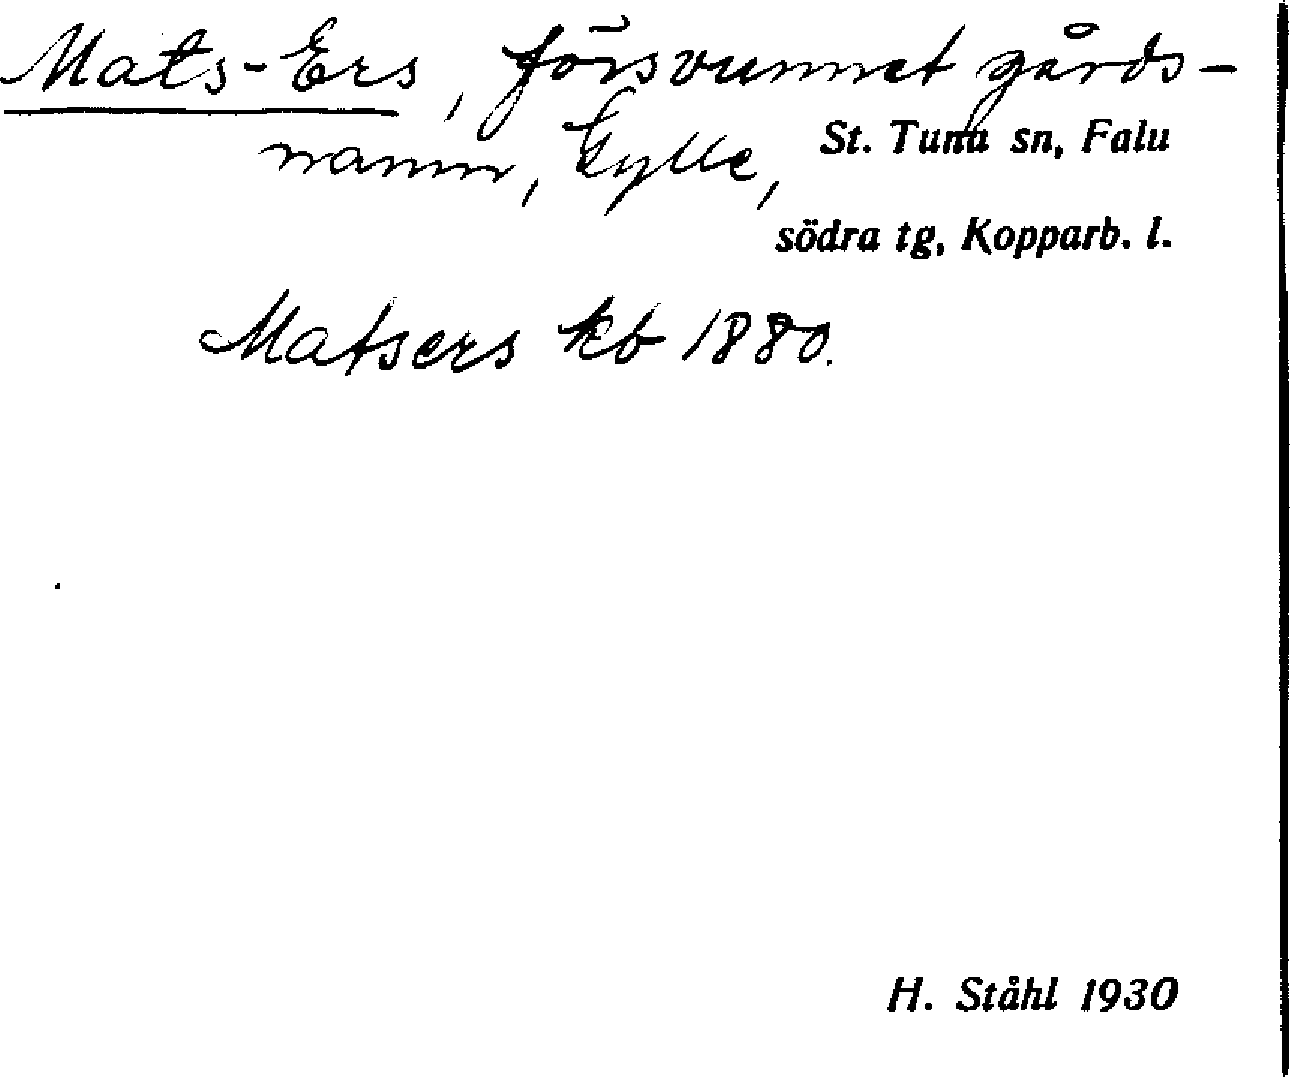 Mats-Ers, försvunnet gårds-
namn, Kylle, St. Tuna sn, Falu
södra tg, Kopparb. l.
Matsers kb 1880.
H. Ståhl 1930